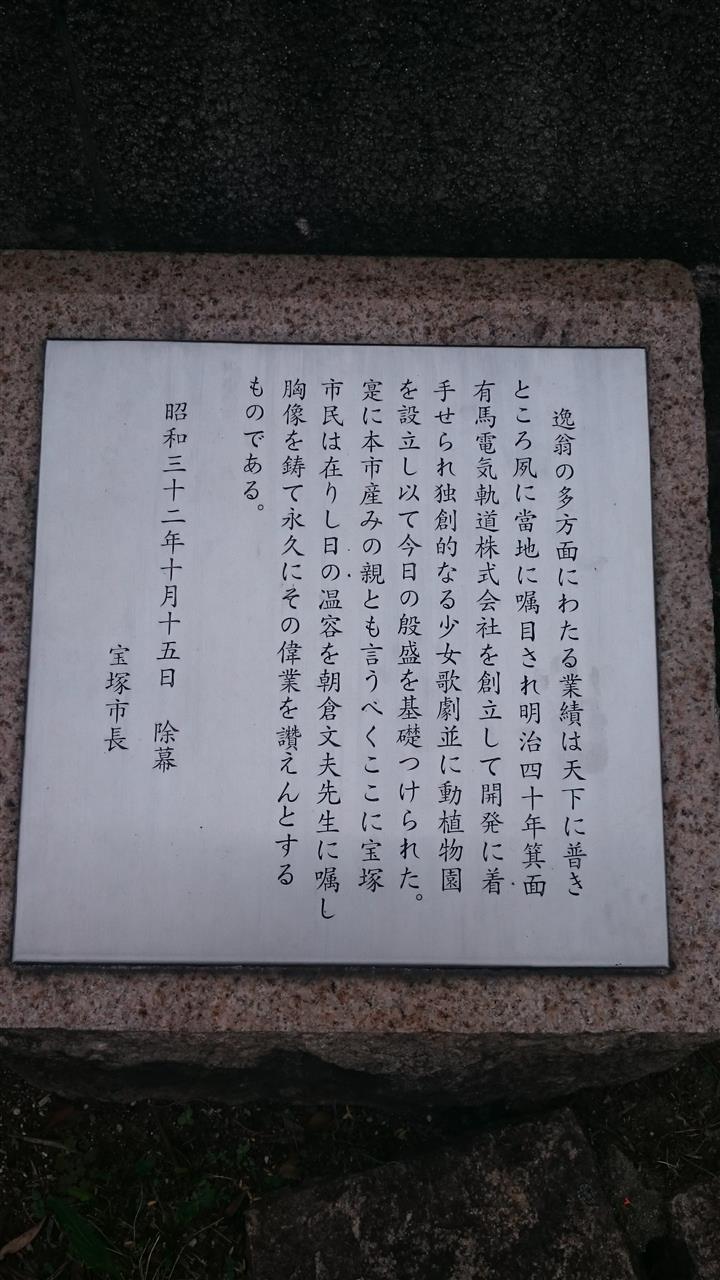 逸翁の多方面にわたる業績は天下に普き
ところ夙に當地に嘱目され明治四十年箕面
有馬電気軌道株式会社を創立して開発に着
手せられ独創的なる少女歌劇並に動植物園
を設立し以て今日の殷盛を基礎つけられた。
寔に本市産みの親とも言うべくここに宝塚
市民は在りし日の温容を朝倉文夫先生に嘱し
胸像を鋳て永久にその偉業を讃えんとする
ものである。
昭和三十二年十月十五日　除幕
宝塚市長